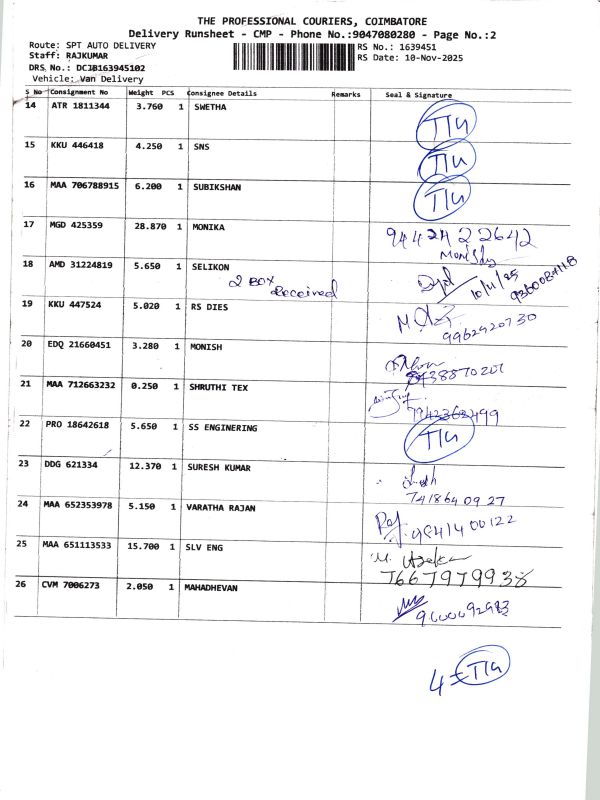 THE PROFESSIONAL COURIERS, COIMBATORE
Delivery Runsheet - CMP - Phone No.:9047080280 - Page No.:2
Route: SPT AUTO DELIVERY
RS No.: 1639451
Staff: RAJKUMAR
RS Date: 10-Nov-2025
DRS No.: DCJB163945102
Vehicle: Van Delivery
S No Consignment No Weight PCS Consignee Details Remarks Seal & Signature
14 ATR 1811344 3.760 1 SWETHA TTU
15 KKU 446418 4.250 1 SNS TTU
16 MAA 706788915 6.200 1 SUBIKSHAN TTU
17 MGD 425359 28.870 1 MONIKA 94424 22642
18 AMD 31224819 5.650 1 SELIKON
2 BOX Received
10/11/25
19 KKU 447524 5.020 1 RS DIES
9962920730
20 EDQ 21660451 3.280 1 MONISH
21 MAA 712663232 0.250 1 SHRUTHI TEX
22 PRO 18642618 5.650 1 SS ENGINERING TTU
23 DDG 621334 12.370 1 SURESH KUMAR
741864 09 27
24 MAA 652353978 5.150 1 VARATHA RAJAN
98414 00122
25 MAA 651113533 15.700 1 SLV ENG
7667979938
26 CVM 7006273 2.050 1 MAHADHEVAN
4 = TTU